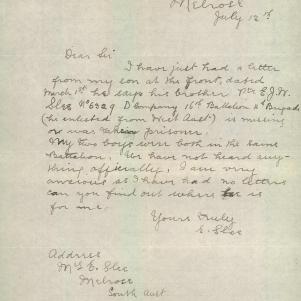 Melrose
July 12th
Dear Sir
I have just had a letter
from my son at the front, dated
March 1st he says his brother Pte E.J.W.
Slee No 6329 D Company 16th Battalion 4th Brigade
(he enlisted from West Aust) is missing
or was taken prisoner.
My two boys were both in the same
Battalion. We have not heard any-
thing officially. I am very
anxious as I have had no letters
can you find out where he is
for me.
Yours truly
E. Slee
Address
Mrs E. Slee
Melrose
South Aust